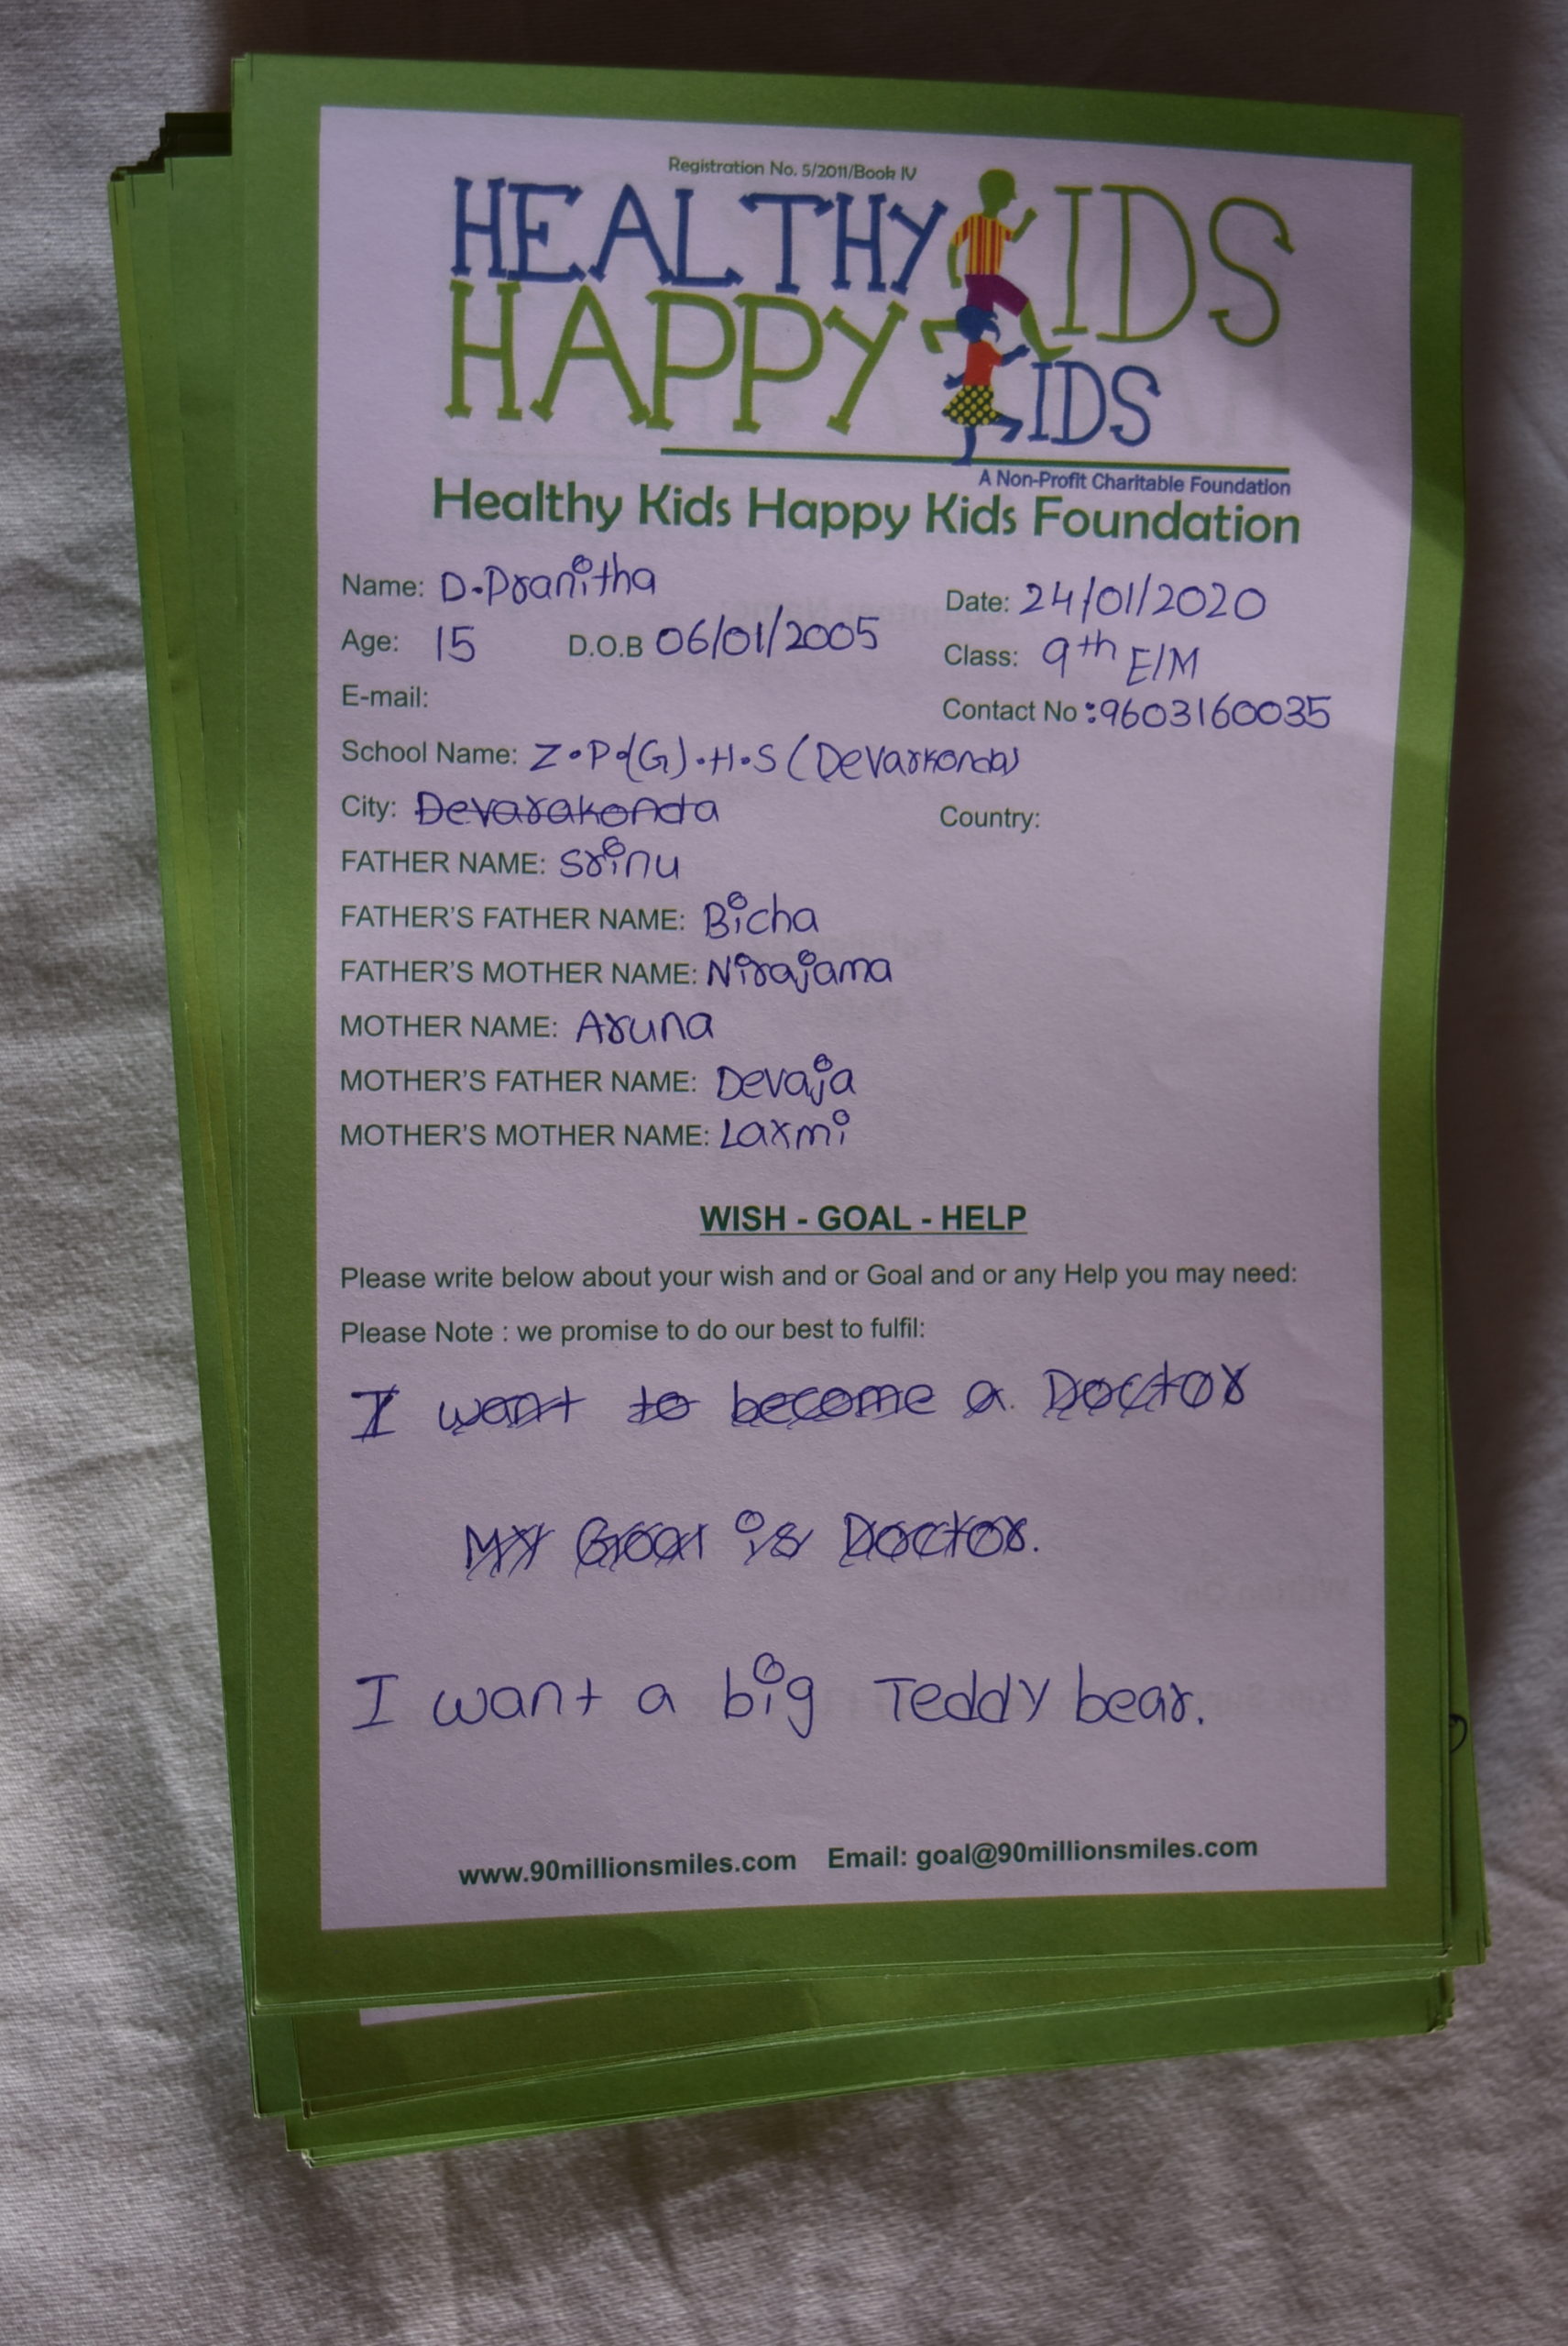 Registration No. 5/2011/Book IV
HEALTHY KIDS
HAPPY KIDS
A Non-Profit Charitable Foundation
Healthy Kids Happy Kids Foundation
Name: D.Pranitha Date: 24/01/2020
Age: 15 D.O.B 06/01/2005 Class: 9th E/M
E-mail: Contact No :9603160035
School Name: Z.P.(G).H.S (Devarkonda)
City: Devarakonda Country:
FATHER NAME: Srinu
FATHER'S FATHER NAME: Bicha
FATHER'S MOTHER NAME: Nirajama
MOTHER NAME: Aruna
MOTHER'S FATHER NAME: Devaja
MOTHER'S MOTHER NAME: Laxmi
WISH - GOAL - HELP
Please write below about your wish and or Goal and or any Help you may need:
Please Note : we promise to do our best to fulfil:
I want to become a Doctor
My Goal is Doctor.
I want a big Teddy bear.
www.90millionsmiles.com Email: goal@90millionsmiles.com